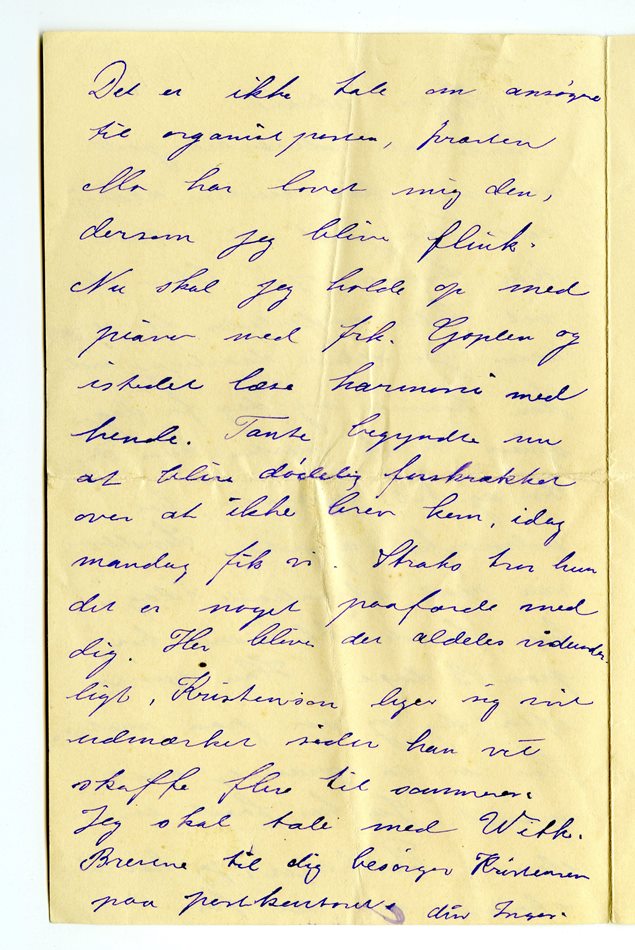 Det er ikke tale om ansøgre
til organistposten, præsten
Mo har lovet mig den,
dersom jeg blive flink.
Nu skal jeg holde op med
piano med frk. Goplen og
istedet læse harmoni med
hende. Tante begyndte nu
at blive dødelig forskrækket
over at ikke brev kom, idag
mandag fik vi. Straks tror hun
det er noget paafærde med
dig. Her bliver det aldeles vidunder-
ligt, Kristenson liger sig vist
udmærket siden han vil
skaffe flere til sommeren.
Jeg skal tale med With.
Brevene til dig besørger Kristensen
paa postkontoret. din Inger.